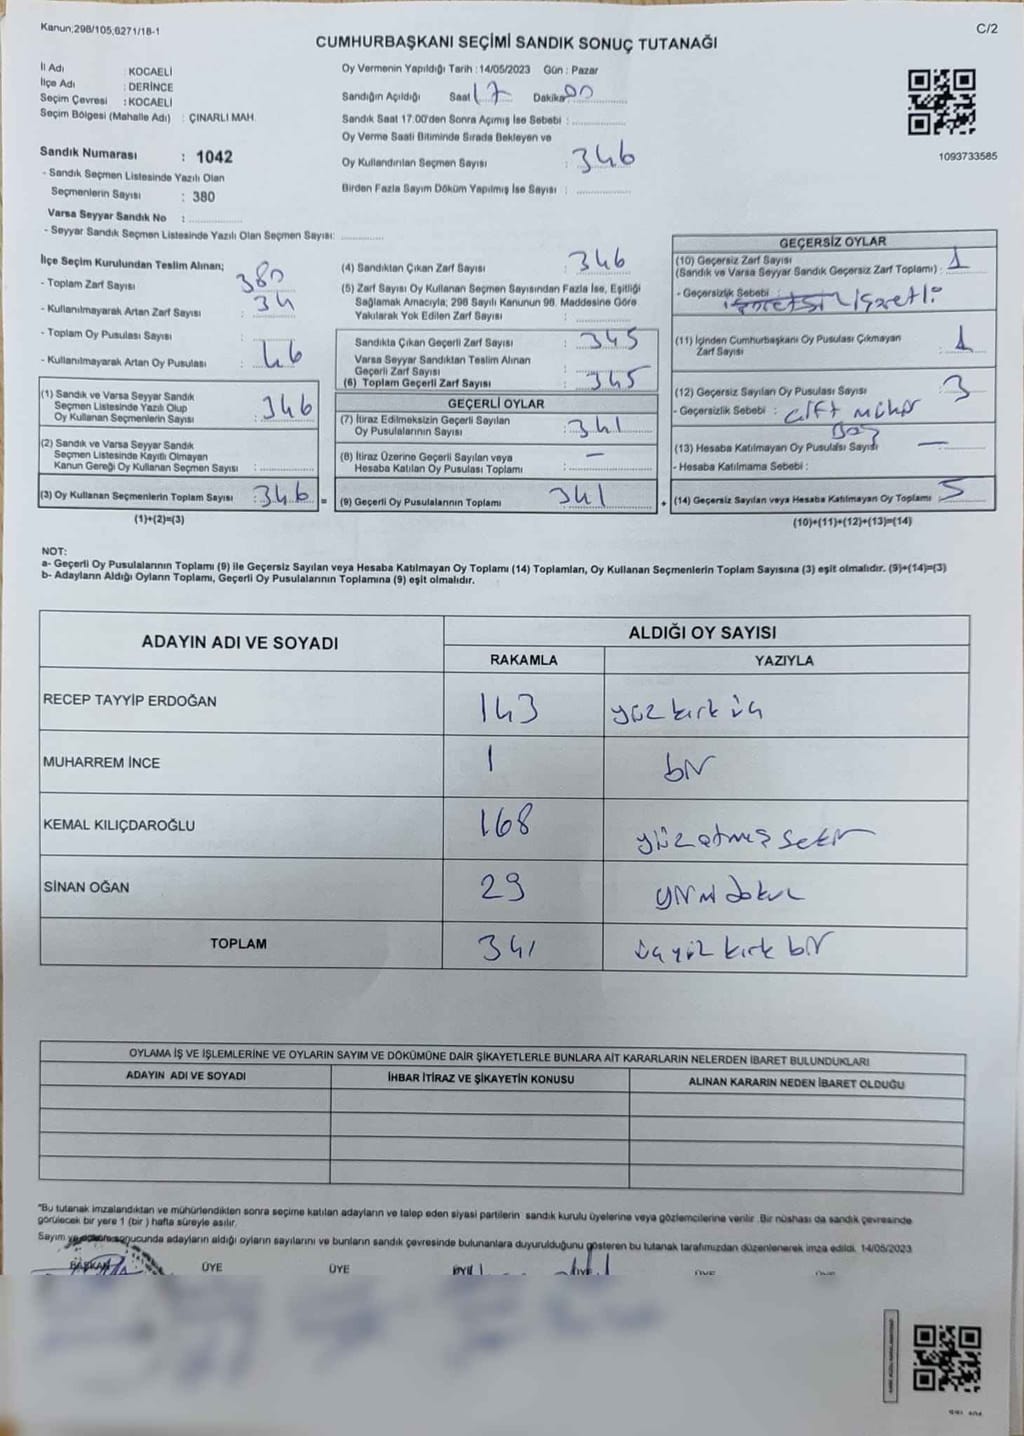 Kanun;298/105,6271/18-1
C/2
CUMHURBAŞKANI SEÇİMİ SANDIK SONUÇ TUTANAĞI
İl Adı : KOCAELİ
İlçe Adı : DERİNCE
Seçim Çevresi : KOCAELİ
Seçim Bölgesi (Mahalle Adı) : ÇINARLI MAH.
Sandık Numarası : 1042
- Sandık Seçmen Listesinde Yazılı Olan
Seçmenlerin Sayısı : 380
Varsa Seyyar Sandık No :
- Seyyar Sandık Seçmen Listesinde Yazılı Olan Seçmen Sayısı:
Oy Vermenin Yapıldığı Tarih : 14/05/2023 Gün : Pazar
Sandığın Açıldığı Saat 17 Dakika 00
Sandık Saat 17.00'den Sonra Açmış İse Sebebi :
Oy Verme Saati Bitiminde Sırada Bekleyen ve
Oy Kullandırılan Seçmen Sayısı : 346
Birden Fazla Sayım Döküm Yapılmış İse Sayısı :
1093733585
İlçe Seçim Kurulundan Teslim Alınan;
- Toplam Zarf Sayısı : 380
- Kullanılmayarak Artan Zarf Sayısı : 34
- Toplam Oy Pusulası Sayısı :
- Kullanılmayarak Artan Oy Pusulası : 46
(1) Sandık ve Varsa Seyyar Sandık
Seçmen Listesinde Yazılı Olup
Oy Kullanan Seçmenlerin Sayısı : 346
(2) Sandık ve Varsa Seyyar Sandık
Seçmen Listesinde Kayıtlı Olmayan
Kanun Gereği Oy Kullanan Seçmen Sayısı :
(3) Oy Kullanan Seçmenlerin Toplam Sayısı : 346 =
(1)+(2)=(3)
(4) Sandıktan Çıkan Zarf Sayısı : 346
(5) Zarf Sayısı Oy Kullanan Seçmen Sayısından Fazla İse, Eşitliği
Sağlamak Amacıyla; 298 Sayılı Kanunun 98. Maddesine Göre
Yakılarak Yok Edilen Zarf Sayısı :
Sandıkta Çıkan Geçerli Zarf Sayısı : 345
Varsa Seyyar Sandıktan Teslim Alınan
Geçerli Zarf Sayısı :
(6) Toplam Geçerli Zarf Sayısı : 345
GEÇERLİ OYLAR
(7) İtiraz Edilmeksizin Geçerli Sayılan
Oy Pusulalarının Sayısı : 341
(8) İtiraz Üzerine Geçerli Sayılan veya
Hesaba Katılan Oy Pusulası Toplamı : —
(9) Geçerli Oy Pusulalarının Toplamı : 341 +
GEÇERSİZ OYLAR
(10) Geçersiz Zarf Sayısı
(Sandık ve Varsa Seyyar Sandık Geçersiz Zarf Toplamı) : 1
- Geçersizlik Sebebi : işaretli
(11) İçinden Cumhurbaşkanı Oy Pusulası Çıkmayan
Zarf Sayısı : 1
(12) Geçersiz Sayılan Oy Pusulası Sayısı : 3
- Geçersizlik Sebebi : çift mühür
Boş
(13) Hesaba Katılmayan Oy Pusulası Sayısı : —
- Hesaba Katılmama Sebebi :
(14) Geçersiz Sayılan veya Hesaba Katılmayan Oy Toplamı : 5
(10)+(11)+(12)+(13)=(14)
NOT:
a- Geçerli Oy Pusulalarının Toplamı (9) ile Geçersiz Sayılan veya Hesaba Katılmayan Oy Toplamı (14) Toplamları, Oy Kullanan Seçmenlerin Toplam Sayısına (3) eşit olmalıdır. (9)+(14)=(3)
b- Adayların Aldığı Oyların Toplamı, Geçerli Oy Pusulalarının Toplamına (9) eşit olmalıdır.
ADAYIN ADI VE SOYADI
ALDIĞI OY SAYISI
RAKAMLA YAZIYLA
RECEP TAYYİP ERDOĞAN 143 yüz kırk üç
MUHARREM İNCE 1 bir
KEMAL KILIÇDAROĞLU 168 yüz atmış sekiz
SİNAN OĞAN 29 yirmi dokuz
TOPLAM 341 üç yüz kırk bir
OYLAMA İŞ VE İŞLEMLERİNE VE OYLARIN SAYIM VE DÖKÜMÜNE DAİR ŞİKAYETLERLE BUNLARA AİT KARARLARIN NELERDEN İBARET BULUNDUKLARI
ADAYIN ADI VE SOYADI İHBAR İTİRAZ VE ŞİKAYETİN KONUSU ALINAN KARARIN NEDEN İBARET OLDUĞU
"Bu tutanak imzalandıktan ve mühürlendikten sonra seçime katılan adayların ve talep eden siyasi partilerin sandık kurulu üyelerine veya gözlemcilerine verilir. Bir nüshası da sandık çevresinde
görülecek bir yere 1 (bir ) hafta süreyle asılır.
Sayım ve döküm sonucunda adayların aldığı oyların sayılarını ve bunların sandık çevresinde bulunanlara duyurulduğunu gösteren bu tutanak tarafımızdan düzenlenerek imza edildi. 14/05/2023
BAŞKAN ÜYE ÜYE ÜYE ÜYE ÜYE ÜYE